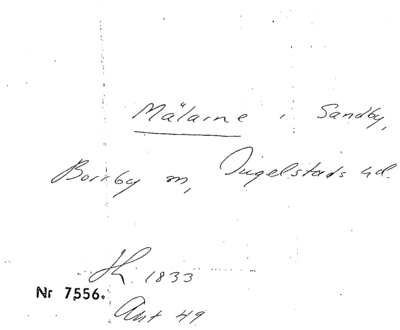 Målarne i Sandby,
Borrby sn, Ingelstads hd.
Jh. 1833
Nr 7556.
Ant 49.